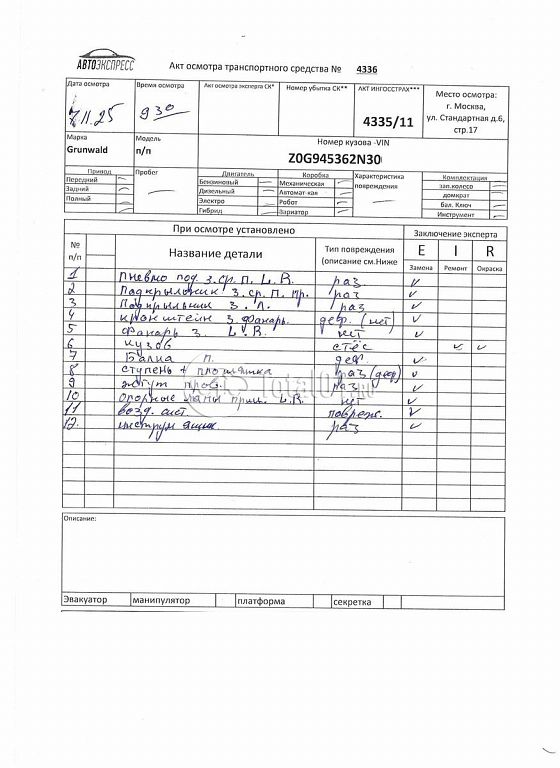 АВТОЭКСПРЕСС
Акт осмотра транспортного средства № 4336
Дата осмотра Время осмотра Акт осмотра эксперта СК* Номер убытка СК** АКТ ИНГОССТРАХ*** Место осмотра:
г. Москва,
ул. Стандартная д.6,
стр.17
7.11.25 9 30 4335/11
Марка Модель Номер кузова -VIN
Grunwald п/п Z0G945362N30
Привод Пробег Двигатель Коробка Характеристика повреждения Комплектация
Передний Бензиновый Механическая зап.колесо
Задний Дизельный Автомат-кая домкрат
Полный Электро Робот бал. Ключ
Гибрид Зариатор Инструмент
При осмотре установлено Заключение эксперта
№ п/п Название детали Тип повреждения (описание см.Ниже E I R
Замена Ремонт Окраска
1 Пневмо под з.ср.п. L.R. раз. ✓
2 Подкрыльник з.ср.п. пр. раз ✓
3 Подкрыльник з.л. раз ✓
4 кронштейн з.фонарь. деф. (нет) ✓
5 Фонарь з. L.R. нет ✓
6 кузов стёс ✓ ✓
7 Балка п. деф. ✓
8 ступень + площадка раз (деф) ✓
9 жгут пров. раз ✓
10 Опорные лапы приц. L.R. нт ✓
11 возд. сист. повреж. ✓
12. инструм ящик раз ✓
Total01.ru
Описание:
Эвакуатор манипулятор платформа секретка